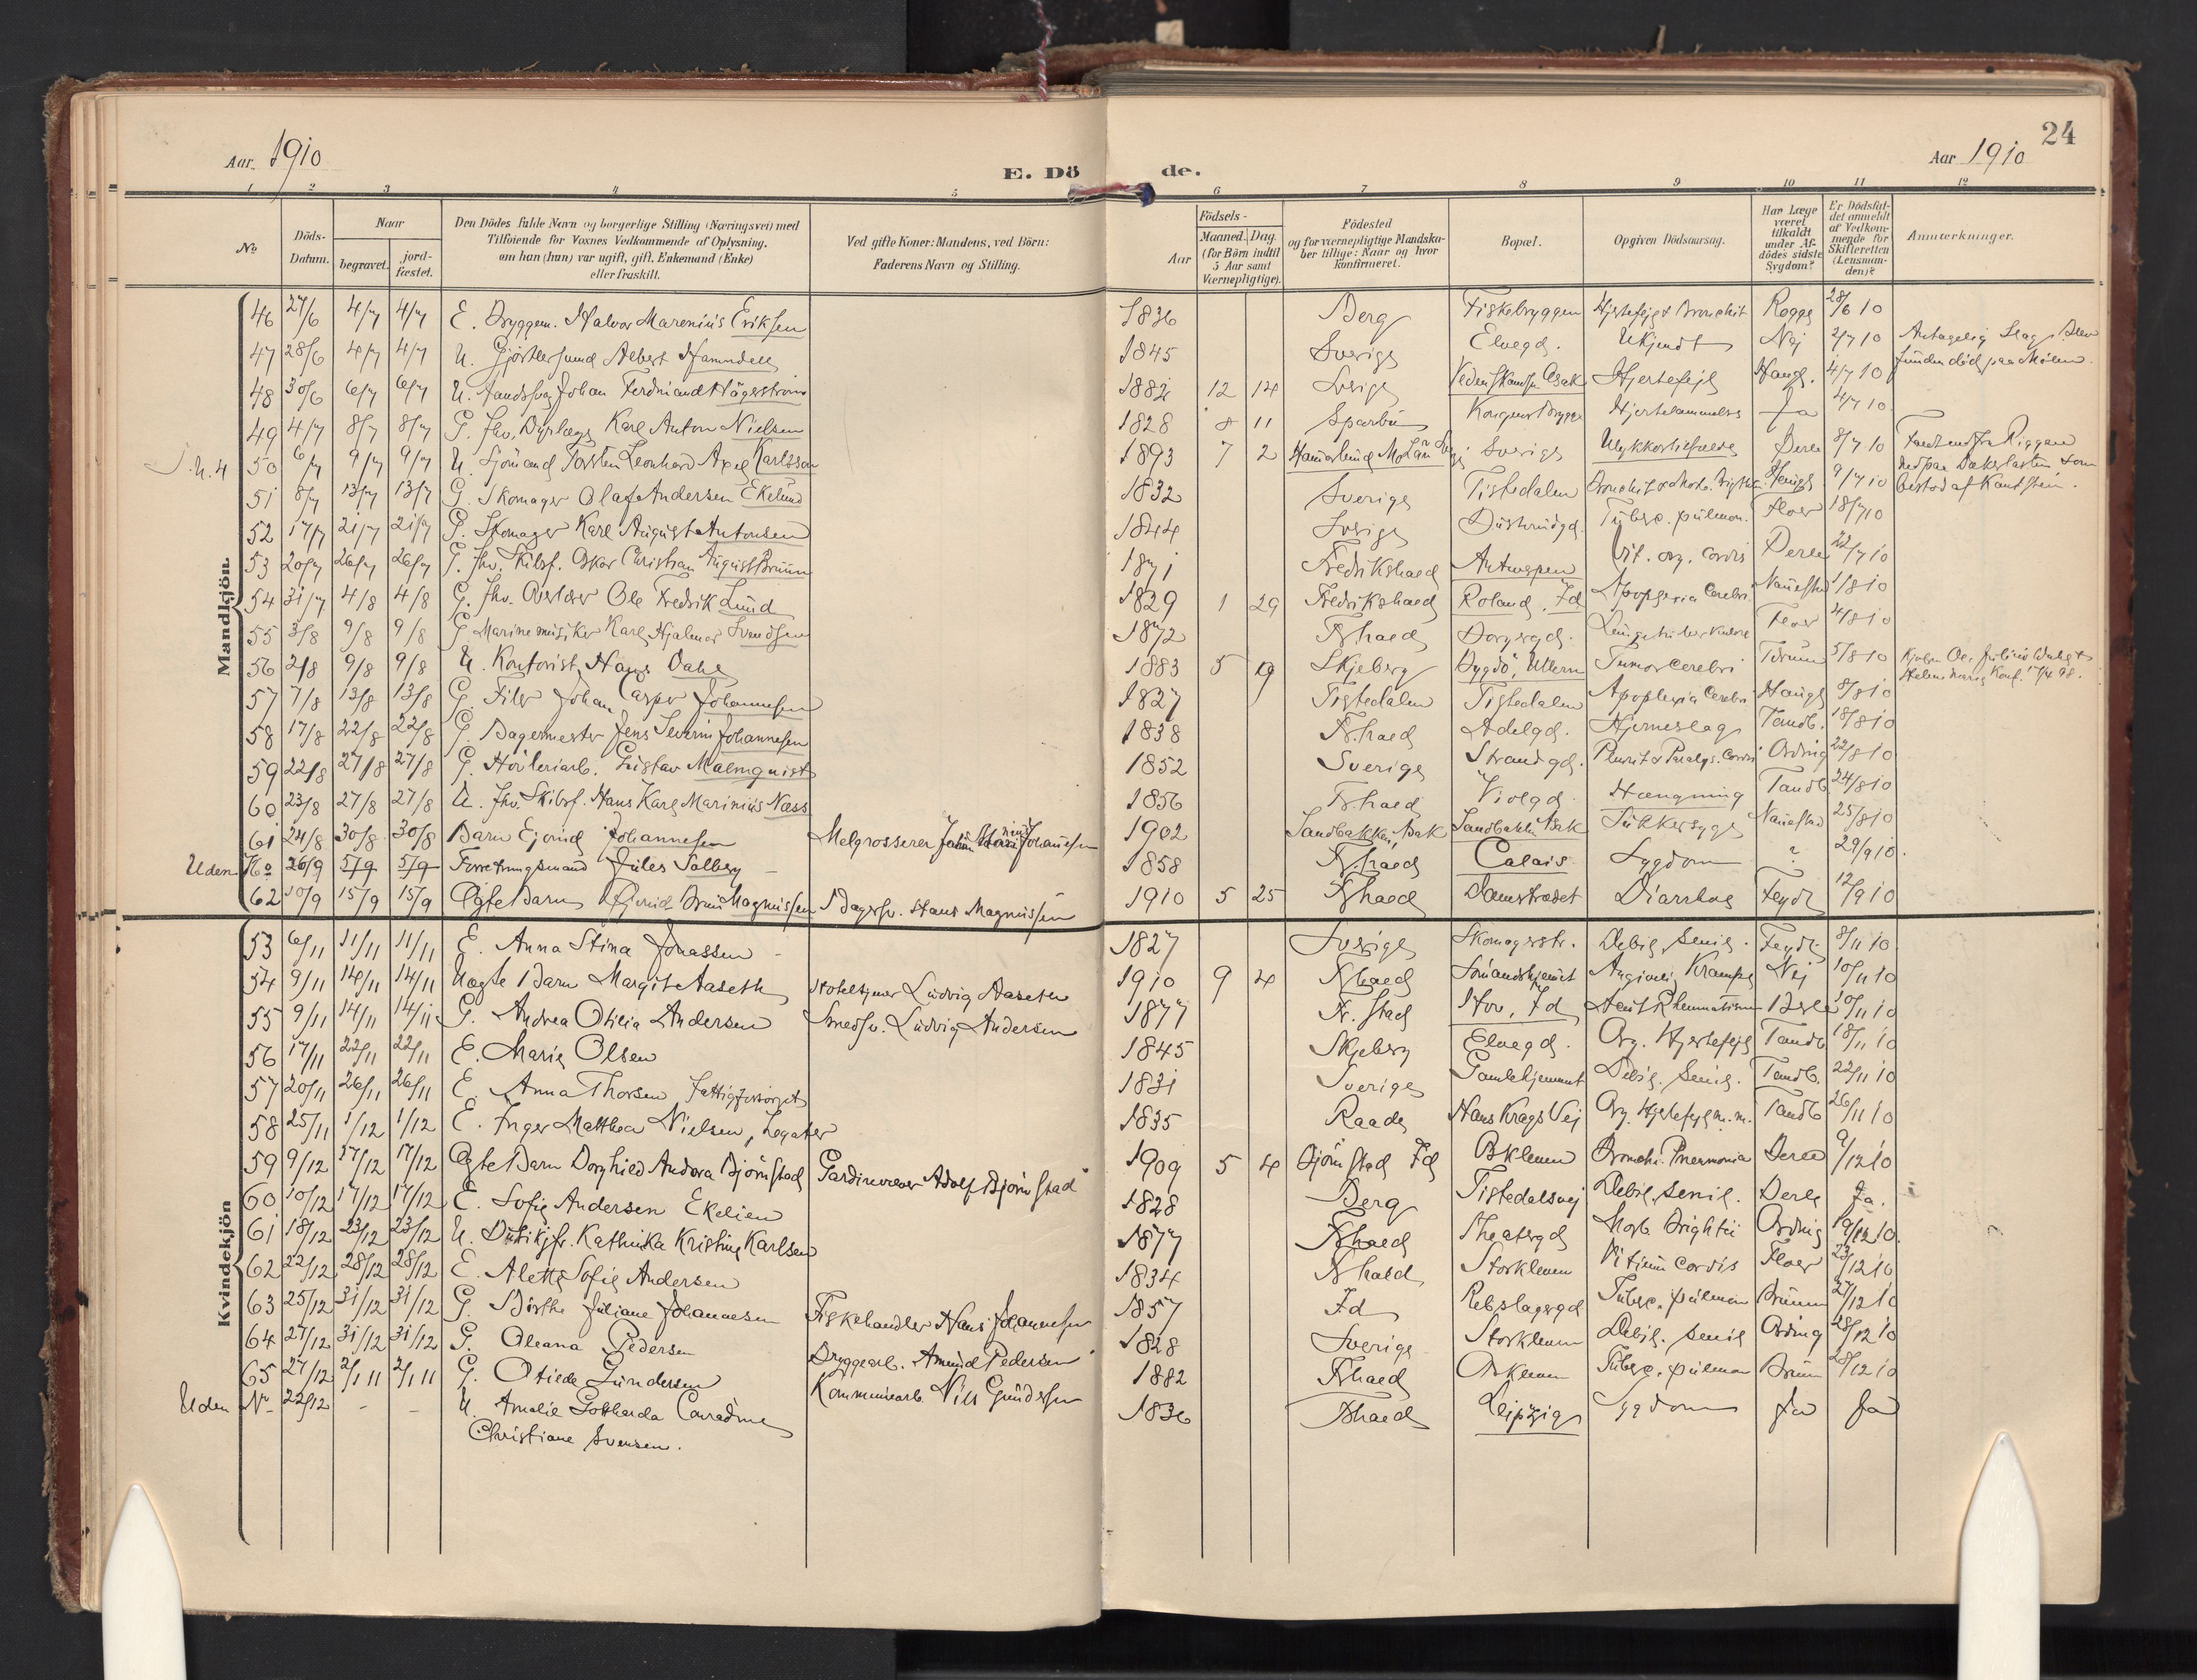 24
Aar 1910
E. Dö de.
Aar 1910
1 2 3 4 5 6 7 8 9 10 11 12
No
Döds-Datum.
Naar
begravet.
jord-fæstet.
Den Dödes fulde Navn og borgerlige Stilling (Næringsvei) med
Tilföiende for Voxnes Vedkommende af Oplysning,
om han (hun) var ugift, gift, Enkemand (Enke)
eller fraskilt.
Ved gifte Koner: Mandens, ved Börn:
Faderens Navn og Stilling.
Födsels-
Aar
Maaned. Dag.
(for Börn indtil
5 Aar samt
Værnepligtige).
Födested
og for værnepligtige Mandska-
ber tillige: Naar og hvor
konfirmeret.
Bopæl.
Opgiven Dödsaarsag.
Har Læge
været
tilkaldt
under Af-
dödes sidste
Sygdom?
Er Dödsfal-
det anmeldt
af Vedkom-
mende for
Skifteretten
(Lensman-
den)?
Anmærkninger.
Mandkjön.
46 27/6 4/7 4/7 E. Bryggem. Halvor Marenius Eriksen 1836 Berg Fiskebryggen Hjertefejl & Bronchit Rogge 28/6 10
47 28/6 4/7 4/7 U. Gjörtlersvend Albert Hamndell 1845 Sverige Elvegd. Ukjendt Nej 2/7 10 Antagelig Slag. Blev
funden död paa Mölen.
48 30/6 6/7 6/7 U. Johan Ferdinand Hägerström 1882 12 14 Sverige Asak Hjertefejl Haugl. 4/7 10
49 4/7 8/7 8/7 G. fhv. Dyrlæge Karl Anton Nielsen 1828 8 11 Sparbu Kongens Brygge Hjertelammelse Ja 4/7 10
50 6/7 9/7 9/7 U. Sjömand Torsten Leonhard Axel Karlsson 1893 7 2 Sverige Ulykkestilfælde Derle 8/7 10
51 8/7 13/7 13/7 G. Skomager Olaf Andersen Ekelund 1832 Sverige Tistedalen 9/7 10 bestod af Kantstein.
52 17/7 21/7 21/7 G. Skomager Karl August Antonsen 1844 Sverige Tuberc. pulmon. Floer 18/7 10
53 20/7 26/7 26/7 G. fhv. Skibsf. Oskar Christian August Bruun 1871 Fredrikshald Antwerpen Vit. org. cordis Derle 22/7 10
54 31/7 4/8 4/8 G. fhv. Overlærer Ole Fredrik Lund 1829 1 29 Fredrikshald Roland, Id Apoplexia Cerebri 1/8 10
55 3/8 9/8 9/8 G. Marinemusiker Karl Hjalmar Svendsen 1872 Fr.hald Borgergd. Lungetuberkulose Floer 4/8 10
56 2/8 9/8 9/8 U. Kontorist Hans Dahl 1883 5 19 Skjeberg Bygdö, Ullern Tumor Cerebri 5/8 10
57 7/8 13/8 13/8 G. Filer Johan Casper Johannesen 1827 Tistedalen Tistedalen Apoplexia Cerebri Haugl 8/8 10
58 17/8 22/8 22/8 G. Bagermester Jens Severin Johannesen 1838 Fr.hald Adelgd. Hjerneslag Tandb. 18/8 10
59 22/8 27/8 27/8 G. Høvleriarb. Gustav Malmquist 1852 Sverige Strandgd. Pleurit & Paralys. Cordis Ording 22/8 10
60 23/8 27/8 27/8 U. fhv. Skibsf. Hans Karl Marinius Næss 1856 Fr.hald Violgd. Hængning Tandb 24/8 10
61 24/8 30/8 30/8 Barn Ejvind Johannesen Melgrosserer Johan Johannesen 1902 Sandbakken, Asak Sandbakken Asak Sukkersyge 25/8 10
Uden No 26/9 5/9 5/9 Forretningsmand Jules Salberg 1858 Fr.hald Calais Sygdom ? 29/9 10.
62 10/9 15/9 15/9 Ægte Barn Ejvind Magnussen Bagersv. Hans Magnussen 1910 5 25 Fr.hald Damstrædet Diarrhoe Feydt 12/9 10
Kvindekjön
53 6/11 11/11 11/11 E. Anna Stina Jonassen 1827 Sverige Skomagerstr. Debil. senil. Feydt 8/11 10
54 9/11 14/11 14/11 Uægte Barn Margit Aaseth Ludvig Aaseth 1910 9 4 Fr.hald Krampe Nej 10/11 10
55 9/11 14/11 14/11 G. Andrea Otilia Andersen Smedsv. Ludvig Andersen 1877 Fr.stad Hov, Id Rheumatisme 10/11 10
56 17/11 22/11 22/11 E. Marie Olsen 1845 Skjeberg Elvegd. Org. Hjertefejl Tandb 18/11 10
57 20/11 26/11 26/11 E. Anna Thorsen Fattigforsørget 1831 Sverige Gamlehjemmet Debil. senil. Tandb. 22/11 10
58 25/11 1/12 1/12 E. Inger Matthea Nielsen, 1835 Raade Hans Krags Vej Org. Hjertefejl m.m. Tandb 26/11 10
59 9/12 17/12 17/12 Ægte Barn Borghild Andora Björnstad Adolf Björnstad 1909 5 4 Björnstad Id Oskleven Bronchi. Pneumonia Derle 9/12 10
60 10/12 17/12 17/12 E. Sofie Andersen Ekelien 1828 Berg Tistedalsvej Debil. senil. Derle Ja.
61 18/12 23/12 23/12 U. Butikjfr. Kathinka Kristine Karlsen 1877 Fr.hald Theatergd Morb. Brightii Ording 19/12 10.
62 22/12 28/12 28/12 E. Alette Sofie Andersen 1834 Fr.hald Storkleven Vitium cordis Floer 23/12 10
63 25/12 31/12 31/12 G. Börthe Juliane Johannesen Fiskehandler Hans Johannesen 1857 Id Rebslagergd Tuberc. pulmon Bruun 27/12 10
64 27/12 31/12 31/12 G. Oleana Pedersen Bryggearb. Amund Pedersen 1828 Sverige Storkleven Debil. senil Ording 28/12 10
65 27/12 2/1 11 2/1 11 G. Otilde Gundersen Kommunearb. Nils Gundersen 1882 Fr.hald Oskleven Tuberc. pulmon Bruun 28/12 10
Uden No 22/12 - - U. Amalie Gottharda Conradine 1836 Fr.hald Leipzig Sygdom Ja Ja
Christiane Svensen.